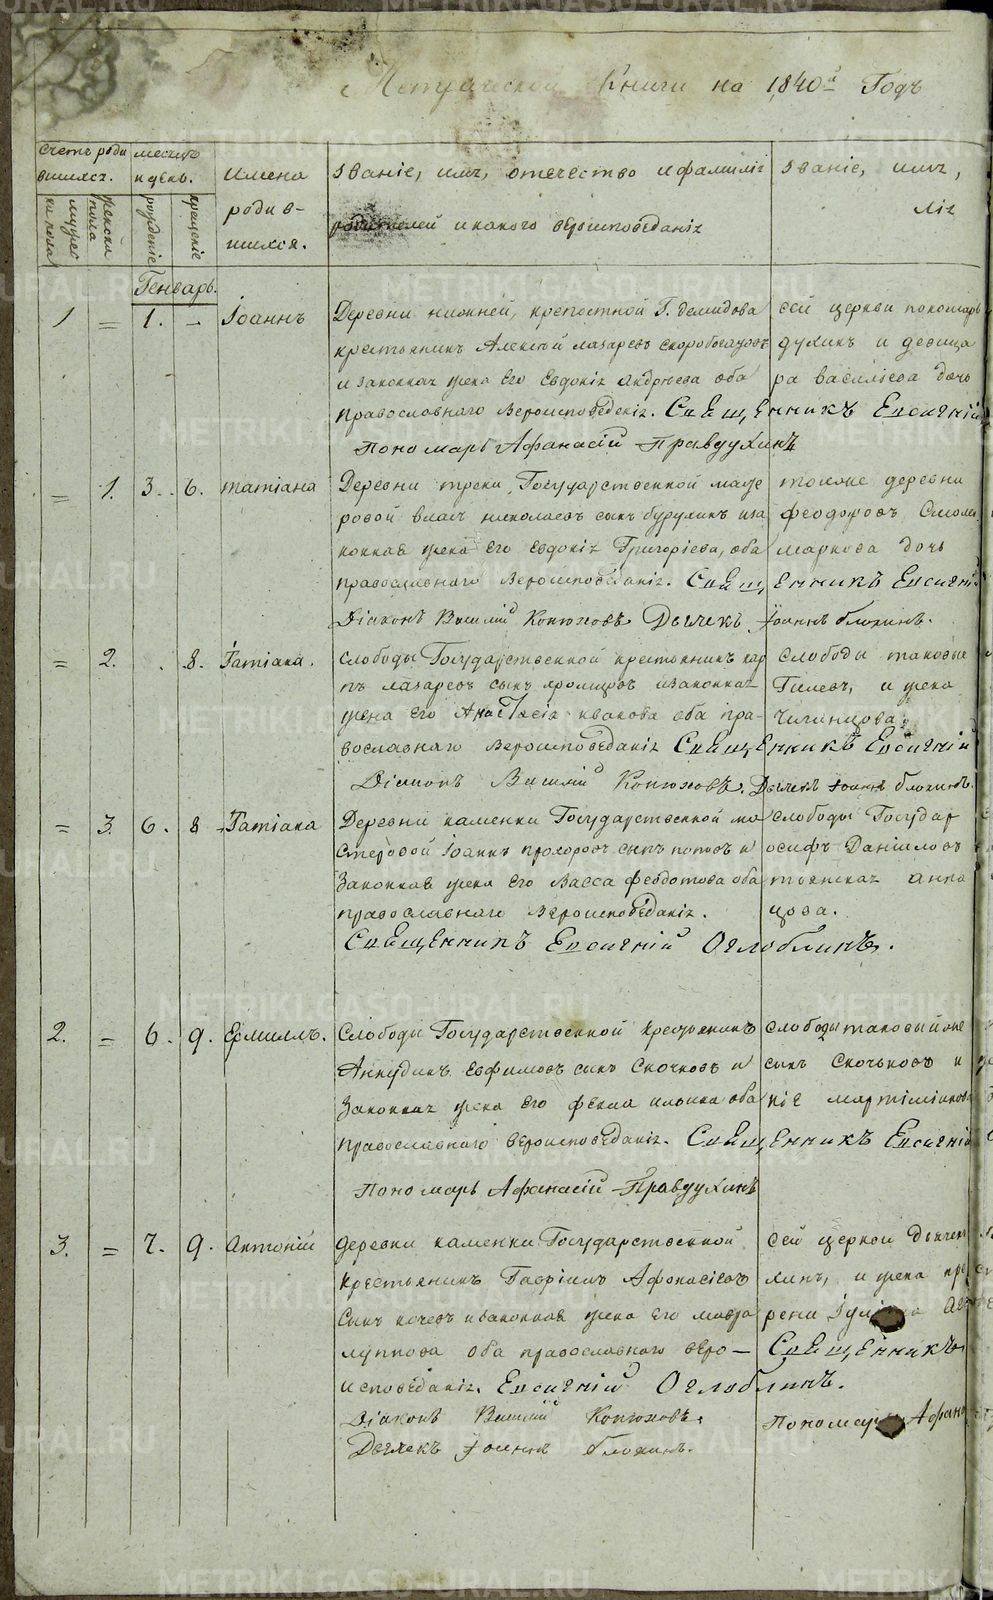 Метрической Книги на 1840й Годъ
Счетъ роди
вшихся.
мужес
ка пола
женска
пола
месяцъ
и день.
рождение
крещение
имена
роди в-
шихся.
званіе, имя, отечество и фамилія
родителей и какого вероисповеданія
званіе, имя,
лія
Генварь.
1 = 1. - Іоаннъ
Деревни нижней, крепостной Г. демидова
крестьянинъ Алексей лазаревъ скоробогатовъ
и законная жена Его Евдокія андреева оба
православнаго Вероисповеденія. Священникъ Евсигній
Пономарь Афанасій Правдухинъ
сей церкви пономарь
духинъ и девица
ра василіева дочь
= 1. 3. 6. татіана
Деревни треки, Государственной масте
ровой власъ николаевъ сынъ бурухинъ иза
конная жена Его Евдокія Григоріева, оба
православнаго Вероисповеданія. Священникъ Евсигній
Діаконъ Василій Конюховъ. Дьячекъ Іоаннъ блохинъ.
тояже деревни
феодоровъ
маркова дочь
= 2. . 8. Татіана.
слободы Государственной крестьянинъ кар
пъ лазаревъ сынъ хромцовъ изаконная
жена Его Анастасія иванова оба пра-
вославнаго вероисповеданія Священникъ Евсигній
Діаконъ Василій Конюховъ. Дьячекъ Іоаннъ блохинъ.
слободы таковые
Гилевъ, и жена
= 3. 6. 8 Татіана
Деревни каменки Государственной ма
стеровой Іоаннъ прохоровъ сынъ поповъ и
Законная жена Его Васса феодотова оба
православнаго Вероисповеданія.
Священникъ Евсигній Оглоблинъ.
слободы Государ
осифъ Даніиловъ
тьянская анна
цова.
2. = 6. 9. Ермилъ.
Слободы Государственной Крестьянинъ
Анкудинъ Евфимовъ сынъ Скочковъ и
Законная жена его фекла ильина оба
православнаго вероисповеданія. Священникъ Евсигній
Пономарь Афанасій Правдухинъ
слободы таковый же
сынъ скочьковъ и
нія мартиміанов
3. = 7. 9. Антоній
деревни каменки Государственной
Крестьянинъ Гавріилъ Афонасіевъ
Сынъ кочевъ и законная жена Его мавра
луппова оба православнаго веро-
исповеданія. Евсигній Оглоблинъ.
Діаконъ Василій Конюховъ.
Дьячекъ Іоаннъ блохинъ.
сей церкви дьячекъ
хинъ, и жена
рена
Священникъ
Пономарь Афана
METRIKI.GASO-URAL.RU